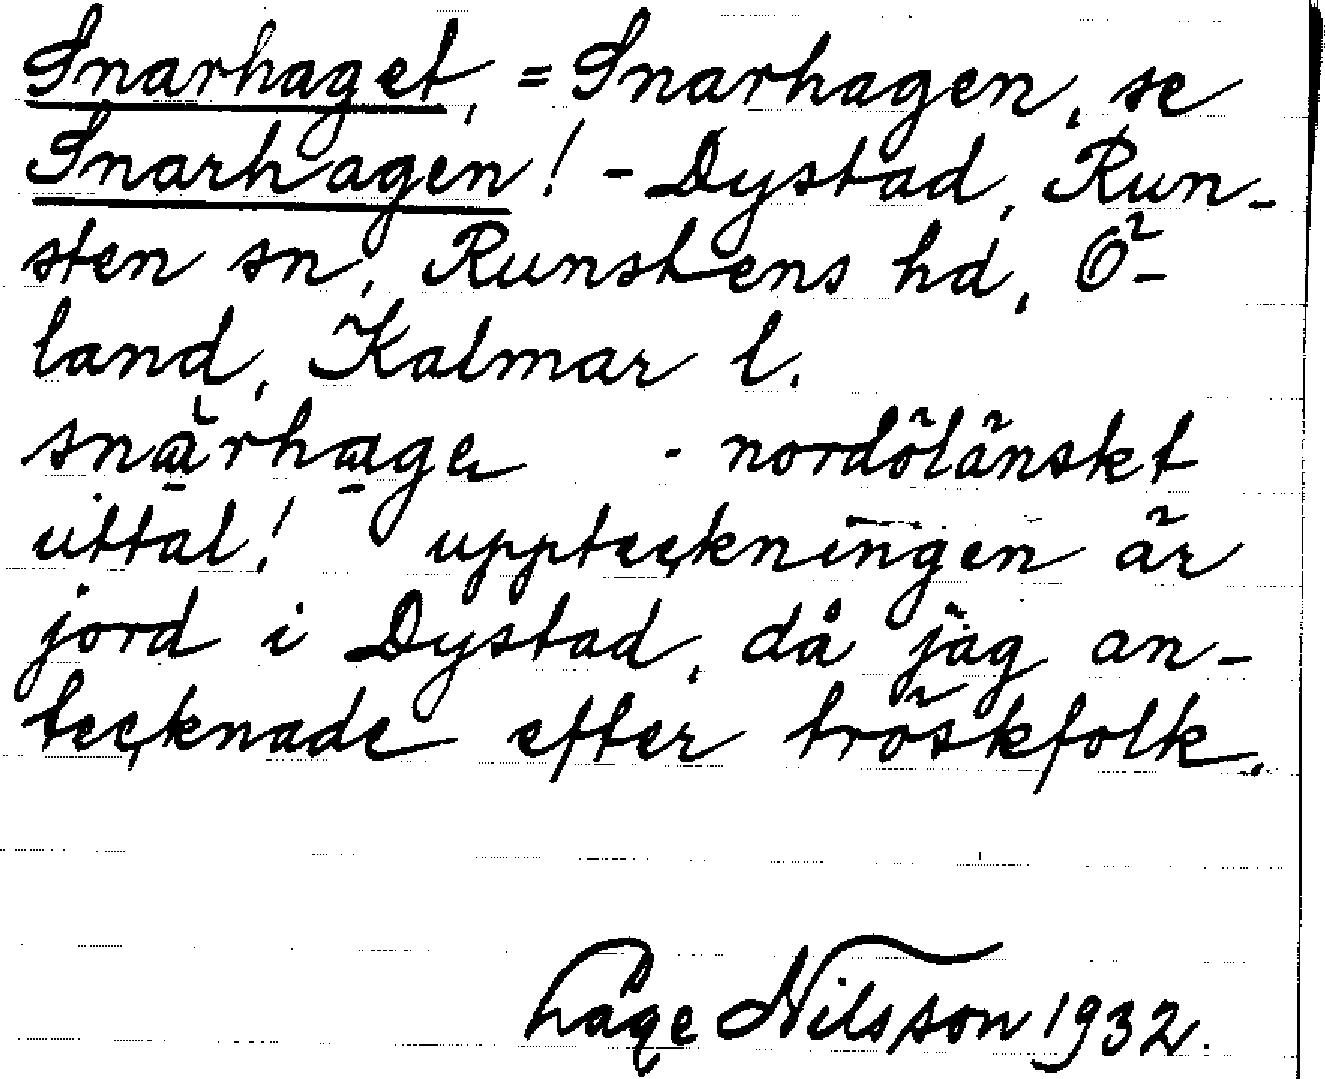 Snarhaget, = Snarhagen, se
Snarhagen! - Dystad, Run-
sten sn, Runstens hd, Ö-
land, Kalmar l.
snärhage - nordöländskt
uttal! uppteckningen är
jord i Dystad, då jag an-
tecknade efter tröskfolk.
Låge Nilsson 1932.